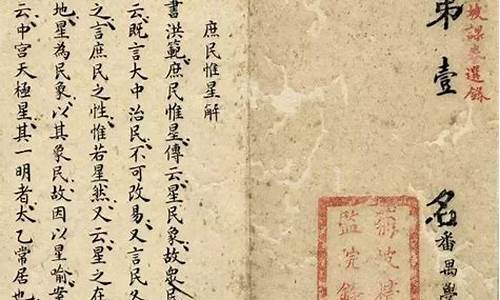 菊坡課卷選錄
第壹名 番禺學
菊坡精
監完錄
庶民惟星解
書洪範庶民惟星傳云星民象故衆民
云既言大中治民不可改易又言民
之言庶民之性惟若星然又云星之在
地星為民象以其象民故因以星喻案
云中宮天極星其一明者太乙常居也